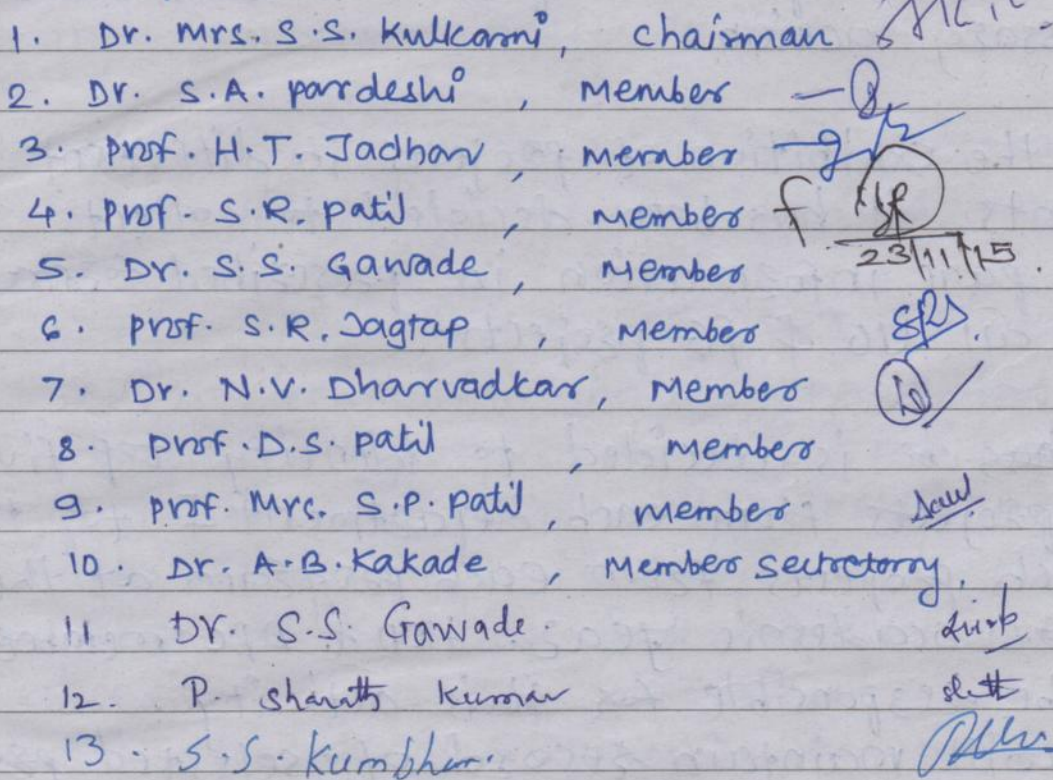 1. Dr. Mrs. S.S. Kulkarni, chairman
2. Dr. S.A. pardeshi, Member
3. Prof. H.T. Jadhav, member
4. Prof. S.R. patil, member
23/11/15.
5. Dr. S.S. Gawade, Member
6. Prof. S.R. Jagtap, Member
7. Dr. N.V. Dharvadkar, Member
8. Prof. D.S. patil, Member
9. Prof Mrs. S.P. patil, member
10. Dr. A.B. Kakade, Member sectretorry.
11. Dr. S.S. Gawade
12. P. sharath Kumar
13. S.S. Kumbhar.